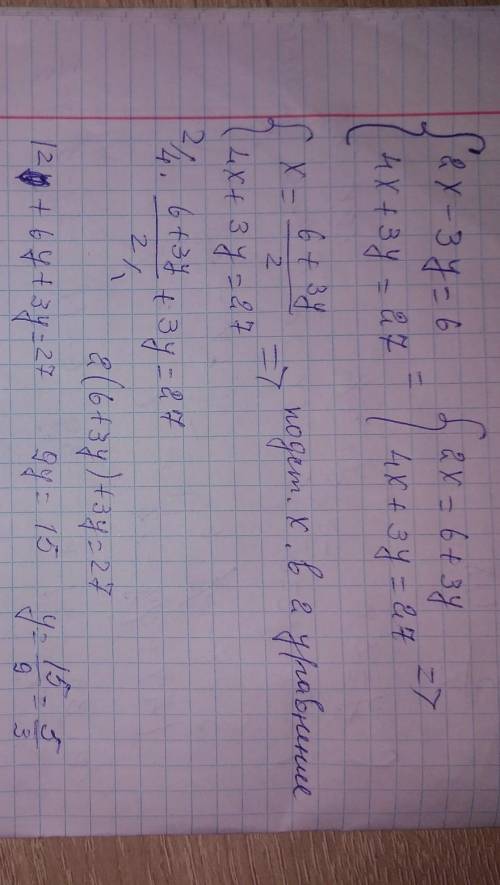 { 2x - 3y = 6
{ 4x + 3y = 27 = { 2x = 6 + 3y
{ 4x + 3y = 27 =>
{ x = 6 + 3y / 2
{ 4x + 3y = 27 => подст. x. в 2 уравнение
2/ 4 · 6 + 3y / 2 \1 + 3y = 27
2(6 + 3y) + 3y = 27
12 + 6y + 3y = 27 9y = 15 y = 15/9 = 5/3